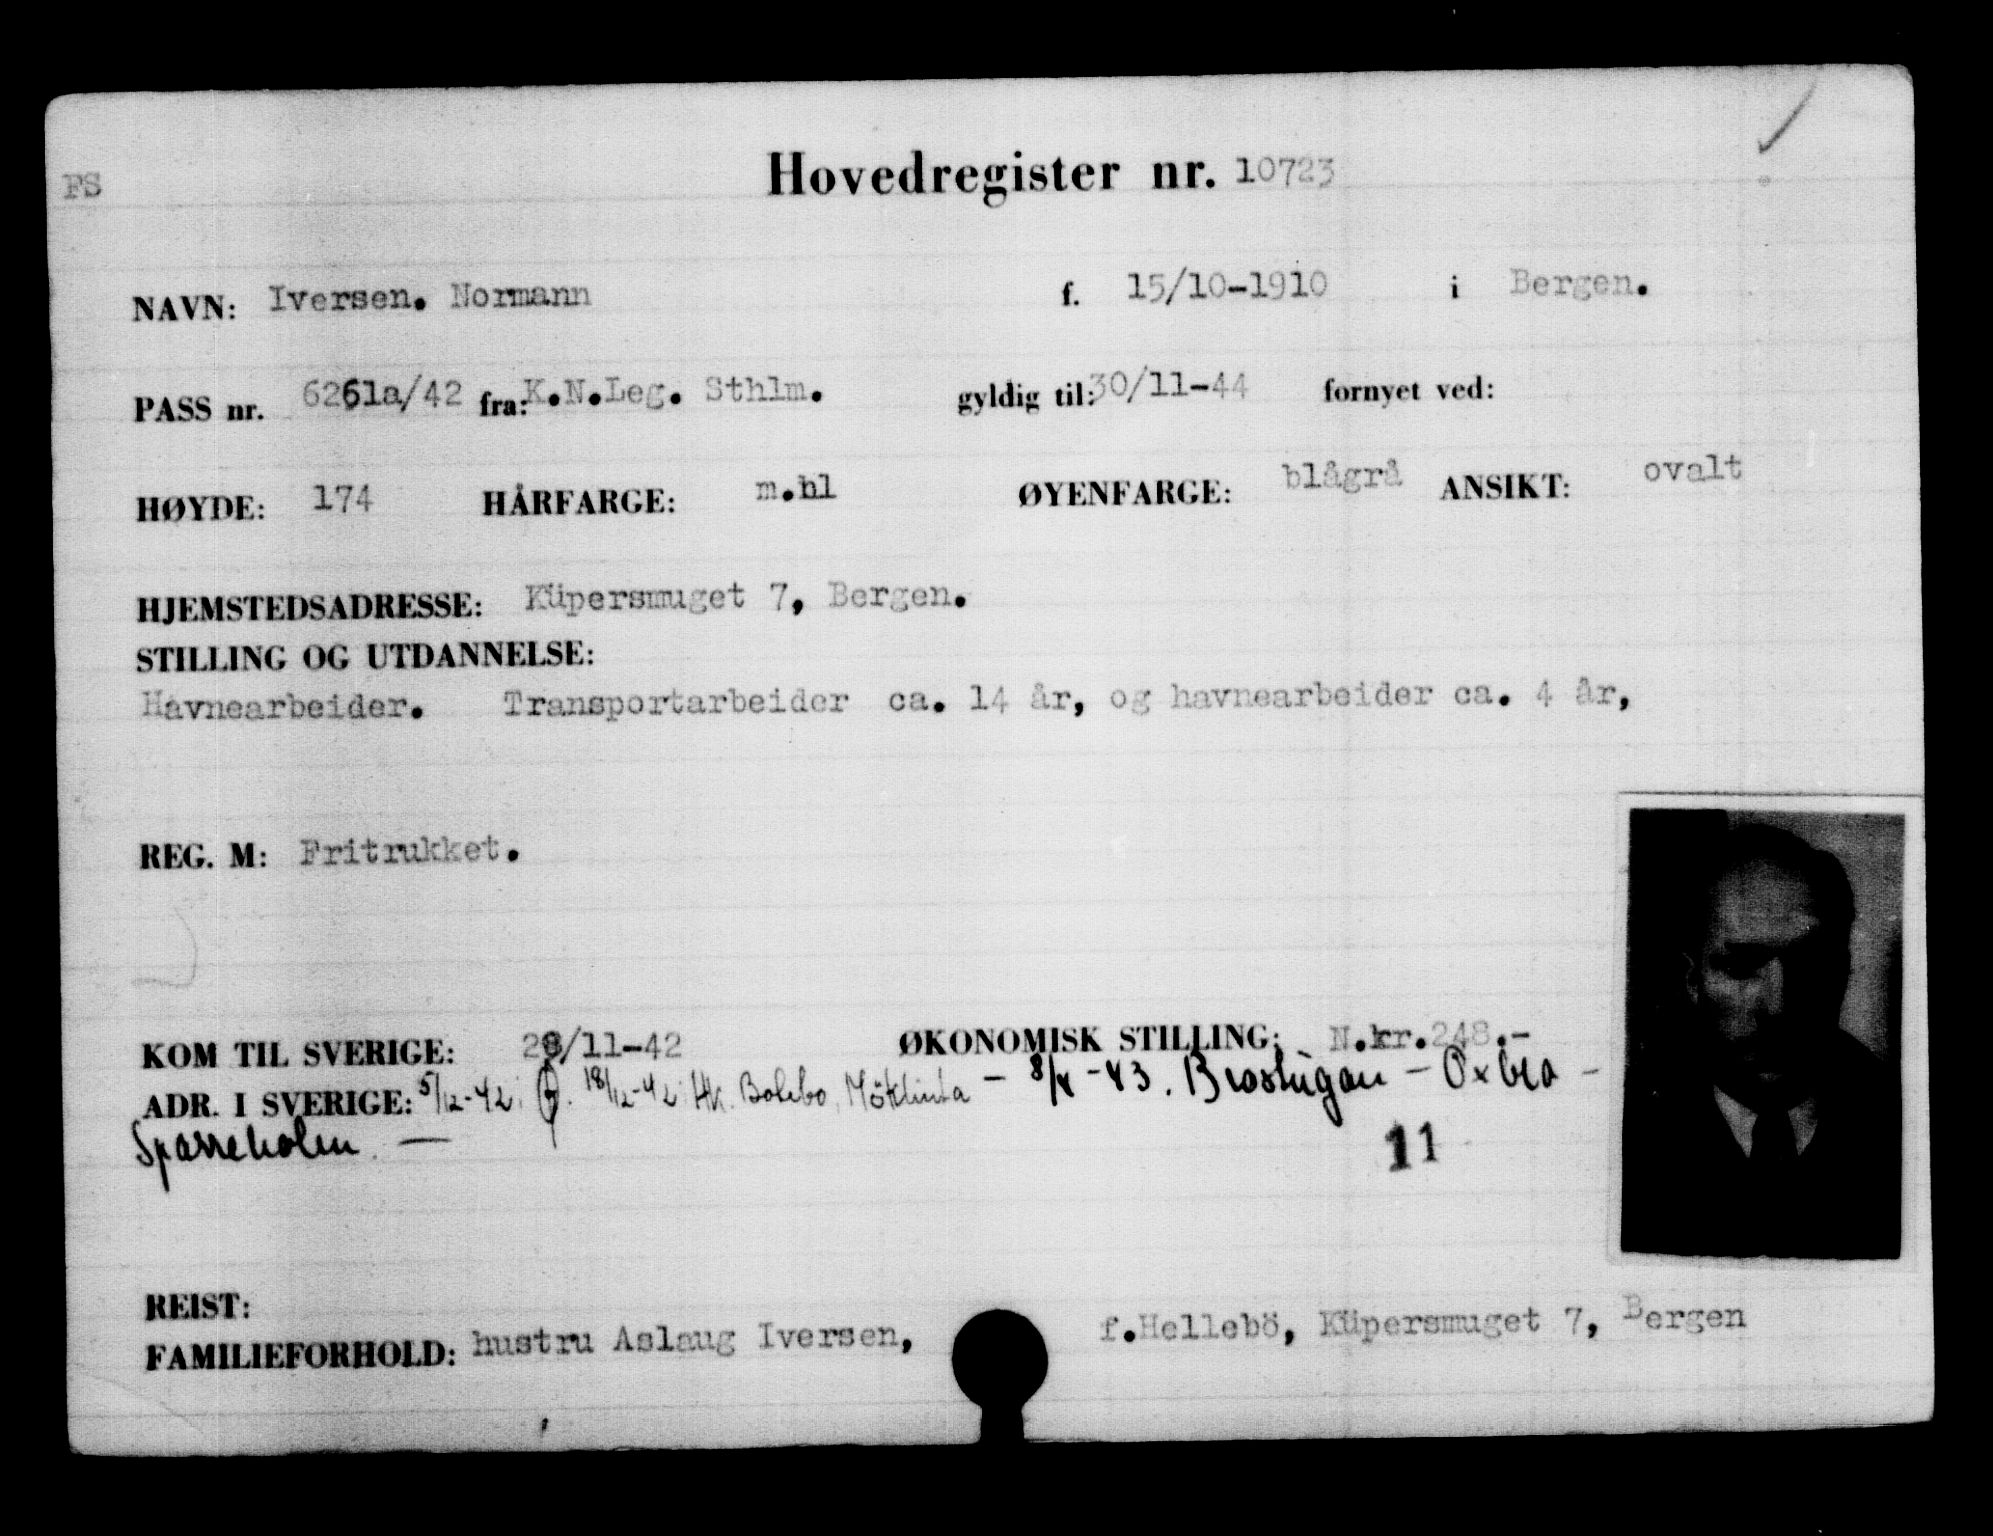 FS
Hovedregister nr. 10723
NAVN: Iversen. Normann f. 15/10-1910 i Bergen.
PASS nr. 6261a/42 fra: K.N.Leg. Sthlm. gyldig til: 30/11-44 fornyet ved:
HØYDE: 174 HÅRFARGE: m.bl ØYENFARGE: blågrå ANSIKT: ovalt
HJEMSTEDSADRESSE: Küpersmuget 7, Bergen.
STILLING OG UTDANNELSE:
Havnearbeider. Transportarbeider ca. 14 år, og havnearbeider ca. 4 år,
REG. M: Fritrukket.
KOM TIL SVERIGE: 28/11-42 ØKONOMISK STILLING: N.kr.248.-
ADR. I SVERIGE: 5/12-42: 18/12-42: Hk. Bolebo, Möklinta - 8/4-43. - Oxbro -
Sparreholm. -
11
REIST:
FAMILIEFORHOLD: hustru Aslaug Iversen, f.Hellebö, Küpersmuget 7, Bergen